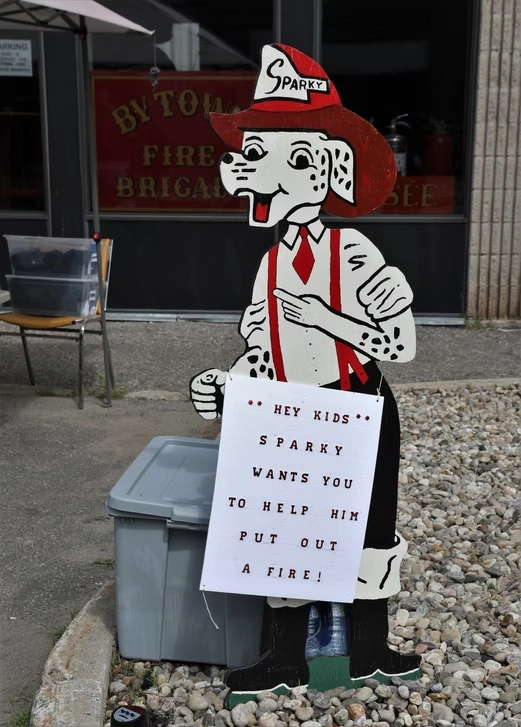 ARKING
SPARKY
BYTOW
FIRE
BRIGA
SEE
** HEY KIDS **
SPARKY
WANTS YOU
TO HELP HIM
PUT OUT
A FIRE!